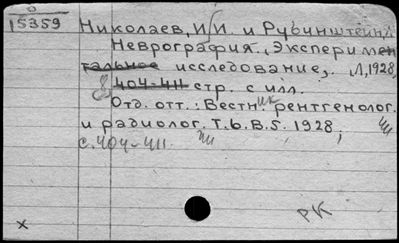 15359
Николаев, И.И. и Рубинштейн,
Неврография, Эксперимен
тальное исследование. Л, 1928,
8 404-411 стр. с илл.
Отд. отт.: Вестник рентгенолог.
и радиолог. Т.6. В.5. 1928,
с. 404-411.
х
РК